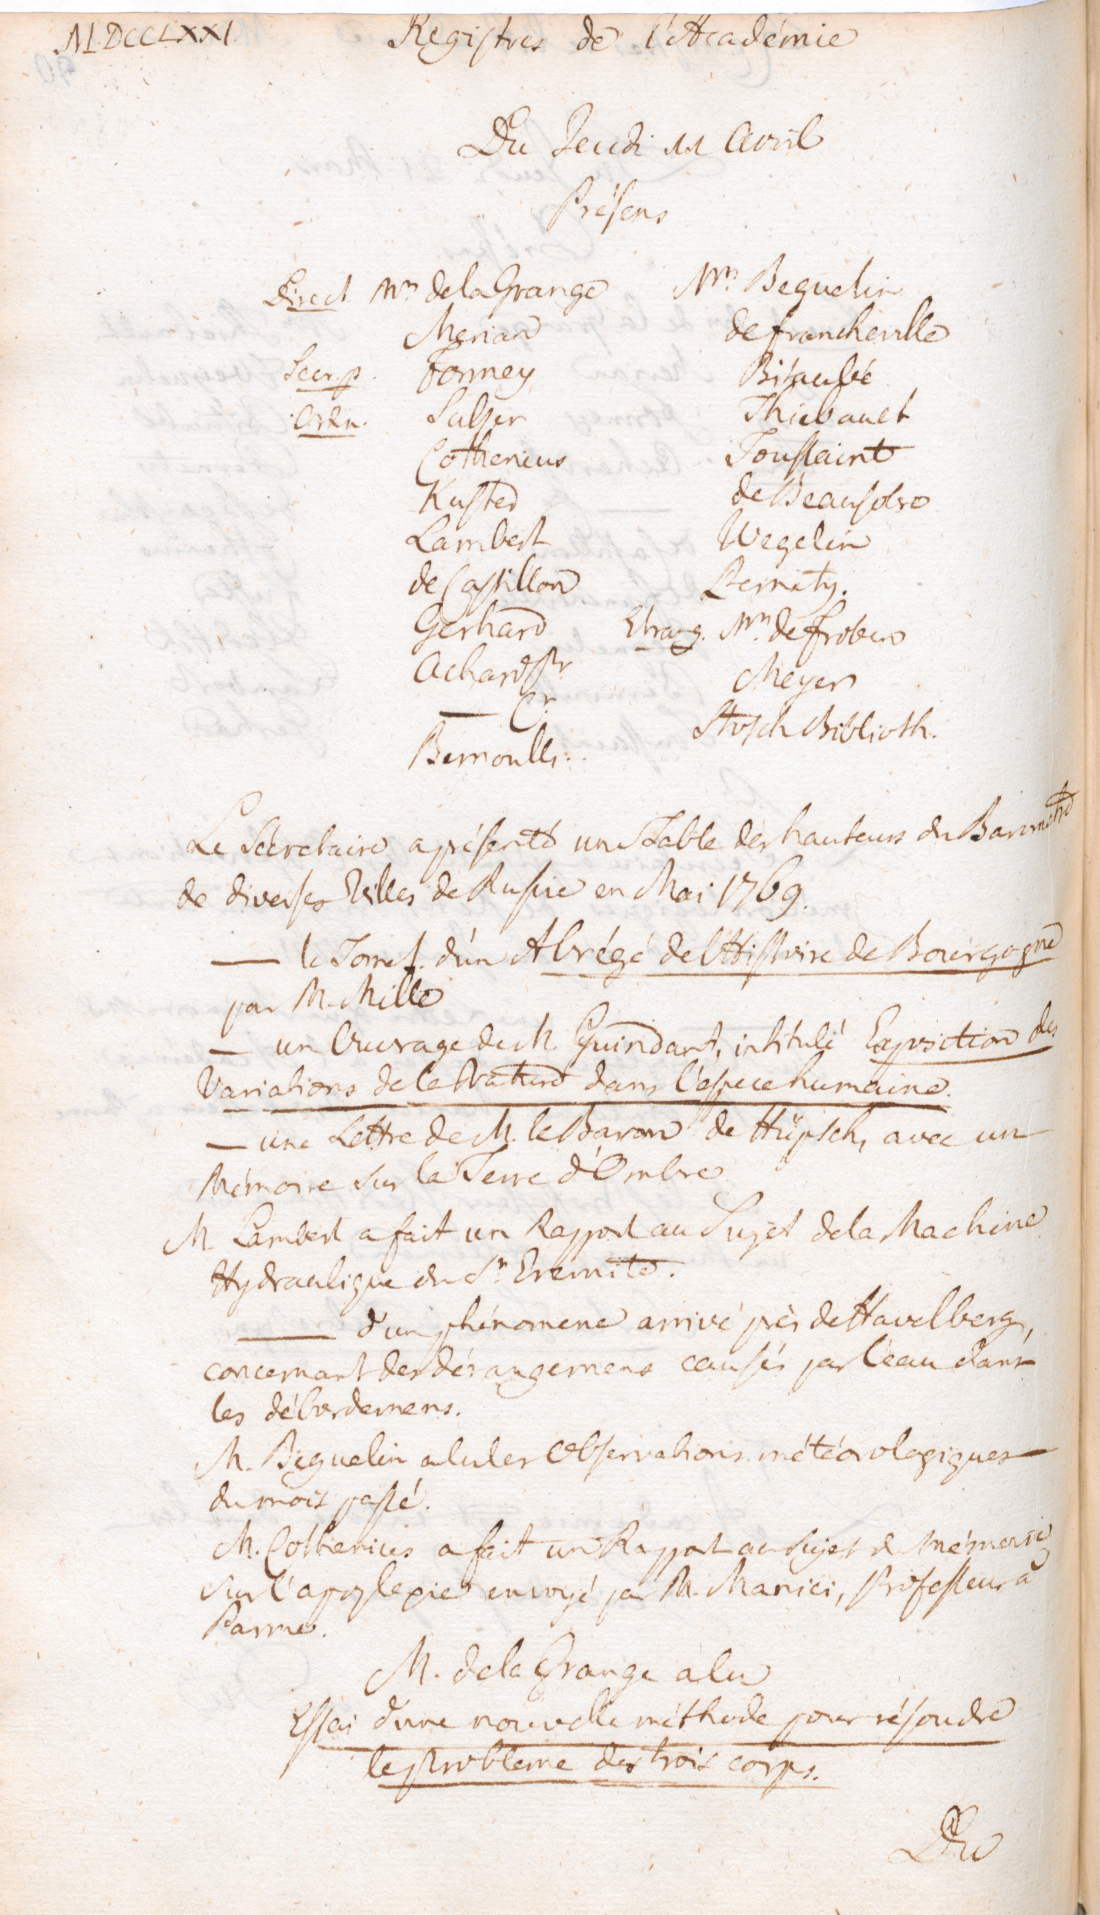 MDCCLXXI. Registres de l'Académie
Du Jeudi 11 Avril
Présens
Direct Mrs de la Grange
Merian
Secr. p. Formey
Ordin. Sulzer
Cothenius
Kuster
Lambert
de Castillon
Gerhard
Achard Sr
— Cr
Bernoulli.
Mrs Beguelin
de Francheville
Bitaubé
Thiebault
Toussaint
de Beausobre
Wegelin
Pernety.
Etrang. Mrs de Froben
Meyer
Stosch Biblioth.
Le Secretaire a présenté une Table des hauteurs du Barometre
de diverses Villes de Russie en Mai 1769.
— le Tome I. d'un Abrégé de l'Histoire de Bourgogne
par M. Mille
— un Ouvrage de M. Guindant, intitulé Exposition des
Variations de la Nature dans l'espece humaine.
— une Lettre de M. le Baron de Hüpsch, avec un
Mémoire sur la Terre d'Ombre
M. Lambert a fait un Rapport au Sujet de la Machine
Hydraulique du Sr Eremite.
— d'un phénomene arrivé près de Havelberg,
concernant des dérangemens causés par l'eau dans
les débordemens.
M. Beguelin a lu les Observations météorologiques
du mois passé.
M. Cothenius a fait un Rapport au sujet du Mémoire
sur l'apoplexie envoyé par M. Manici, Professeur à
Parme.
M. de la Grange a lu
Essai d'une nouvelle méthode pour résoudre
le problème des trois corps.
Du